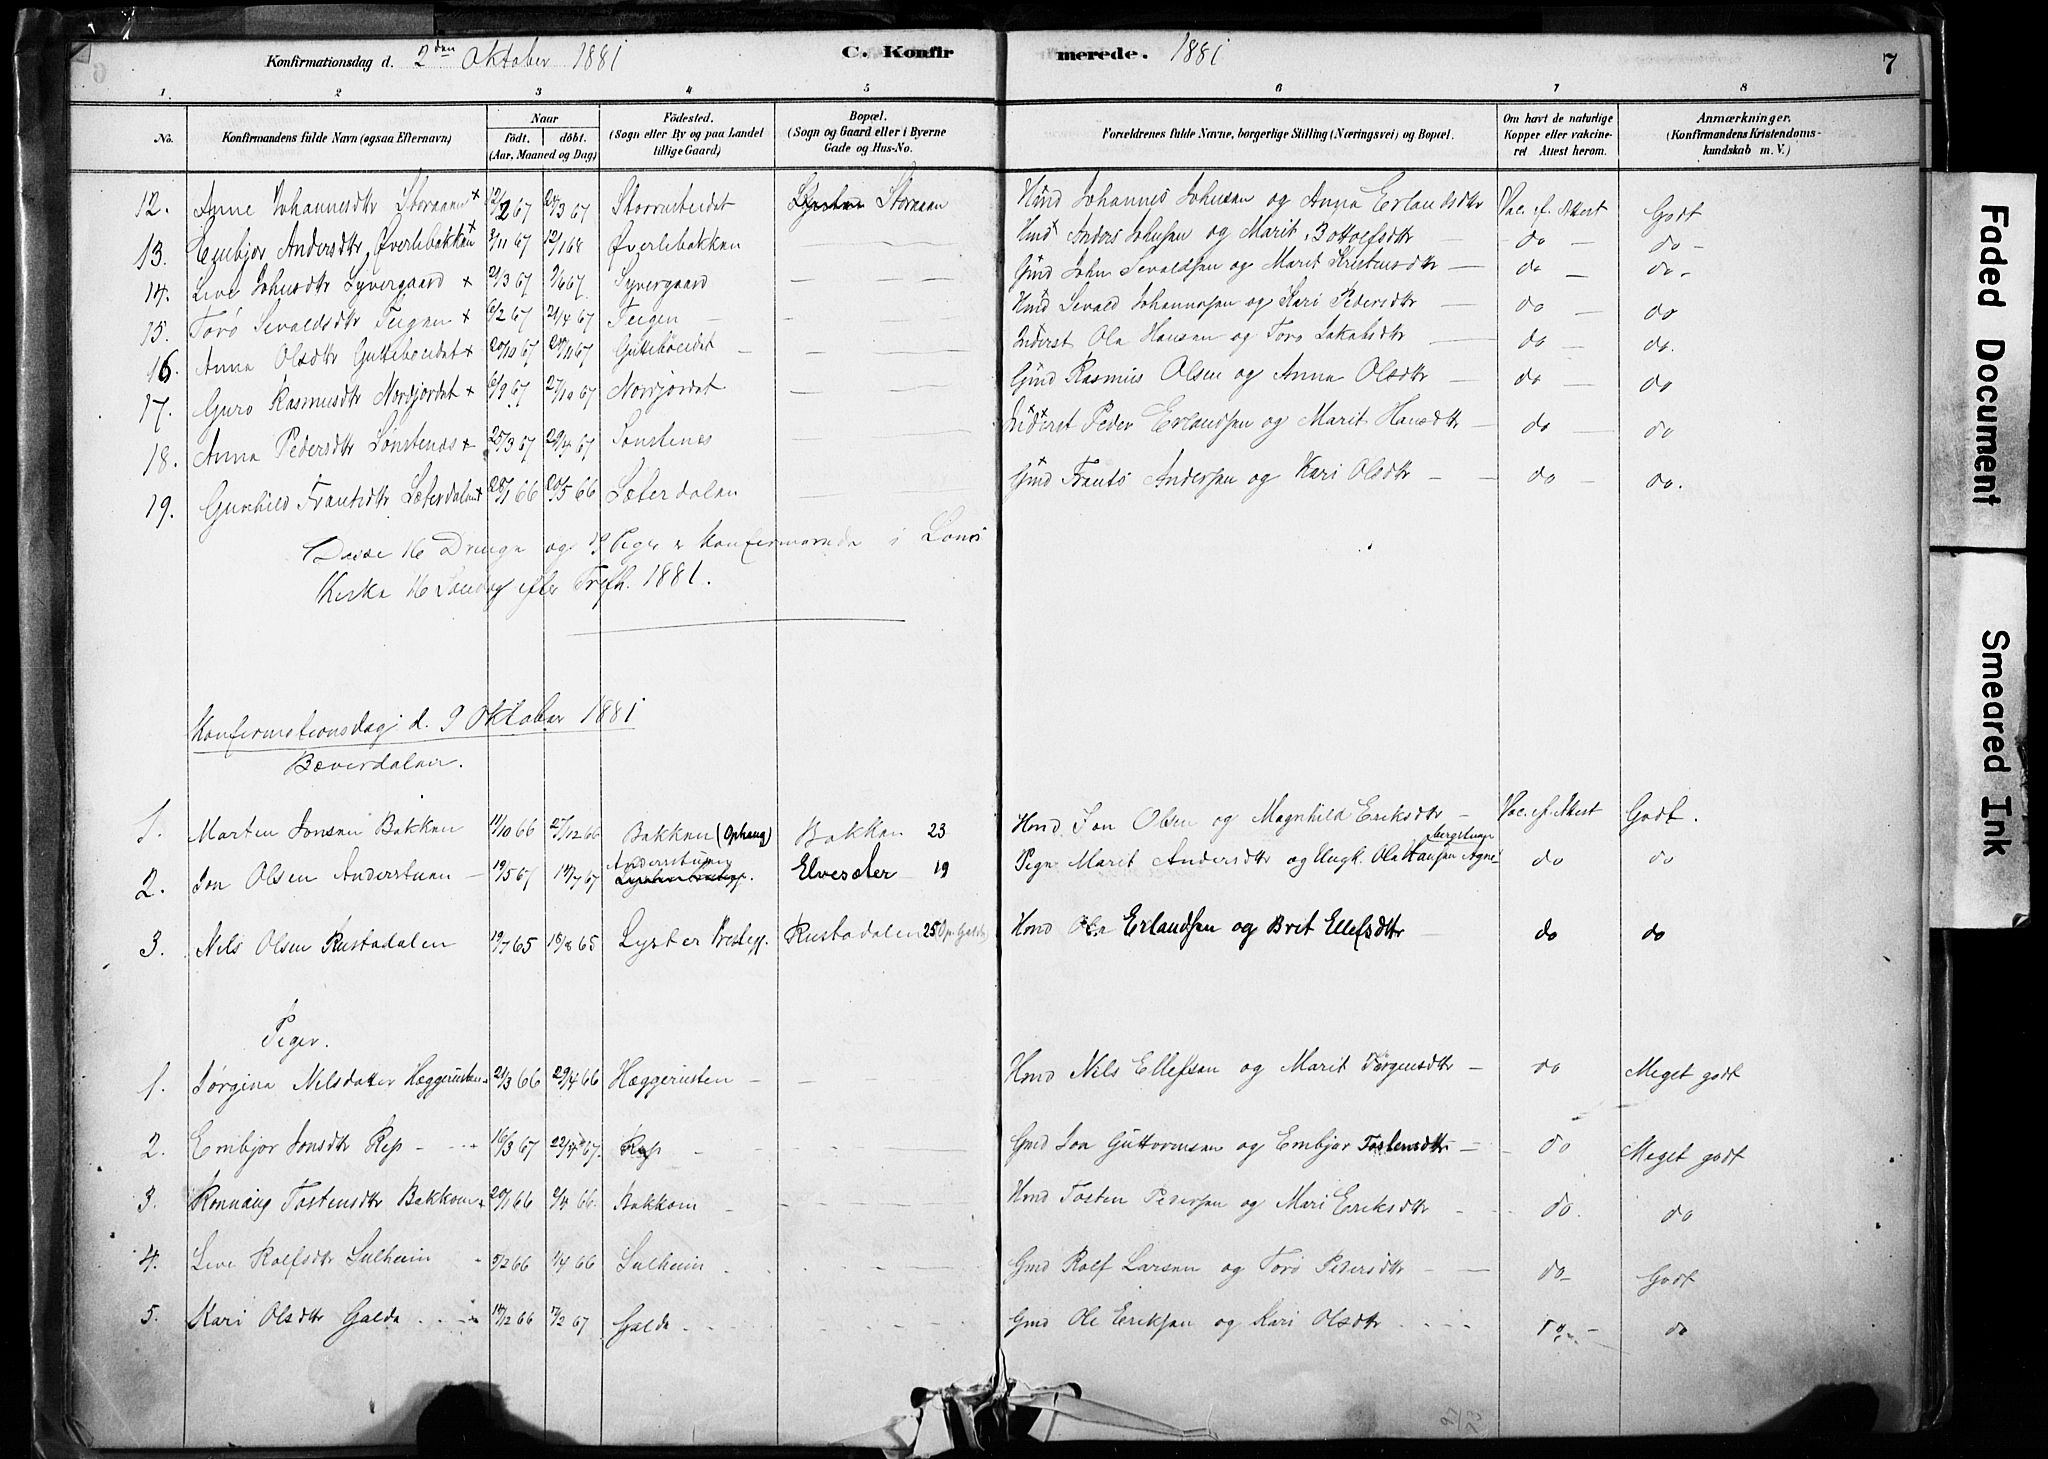 Konfirmationsdag d. 2den Oktober 1881 C. Konfirmerede. 1881 7
1. 2 3 4 5 6 7 8
No. Konfirmandens fulde Navn (ogsaa Efternavn) Naar født. døbt. (Aar, Maaned og Dag) Födested. (Sogn eller By og paa Landet tillige Gaard.) Bopæl. (Sogn og Gaard eller i Byerne Gade og Hus-No. Forældrenes fulde Navne, borgerlige Stilling (Næringsvei) og Bopæl. Om havt de naturlige Kopper eller vakcineret Attest herom. Anmærkninger. (Konfirmandens Kristendomskundskab m. V.)
12. Anne Johannesdtr Storaaen + 12/2 67 Storrusteidet Storaaen Hmd Johannes Johnsen og Anna Erlandsdtr Vac. ef. Attest Godt
13. Embjor Andersdtr Øverlibakken + 3/11 67 12/1 68 Øverlibakken — — Hmd Anders Johnsen og Marit Bottolfsdtr — do — do —
14. Live Johnsdtr Syvergaard + 21/3 67 Syvergaard — — Gmd John Sevaldsen og Marit Kristensdtr — do — do —
15. Torø Sevaldsdtr Teigen + 6/2 67 21/4 67 Teigen — Hmd Sevald Johannesen og Kari Pedersdtr do — do
16. Anna Olsdtr Guttebøeidet + 20/10 67 24/11 67 Guttebøeidet — Inderst Ola Hansen og Toro Jakobsdtr do — do.
17. Guro Rasmusdtr Nordjordet + 6/9 67 27/10 67 Nordjordet — Gmd Rasmus Olsen og Anna Olsdtr — do — do
18. Anna Pedersdtr Sønstenæs + 25/3 67 29/4 67 Sønstenæs — Inderst Peder Erlandsen og Marit Hansdtr — do — do
19. Gunhild Frantsdtr Læterdalen + 28/1 66 20/5 66 Læterdalen — Gmd Frants Andersen og Kari Olsdtr — do — do.
Disse 16 Drenge og 19 Piger er konfirmerede i Loms
Kirke 16 Søndag efter Trefh. 1881.
Konfirmationsdag d. 9 Oktober 1881
Bæverdalen.
1. Morten Jonsen Bakken 11/10 66 27/12 66 Bakken (Ophaug) Bakken 23 Hmd Jon Olsen og Magnhild Eriksdtr — Vac. ef. Attest Godt.
2. Jon Olsen Anderstuen — 19/5 67 14/7 67 Anderstuen Elvesæter 19 Pige Marit Andersdtr og Ungk. Ola Hansen do do
3. Nils Olsen Rustadalen 19/7 65 15/8 65 Lyster Prestegj. Rustadalen 25 Hmd Ola Erlandsen og Brit Ellefsdtr — do do
Piger.
1. Jørgina Nilsdatter Hæggerusten 21/3 66 29/4 66 Hæggerusten — — Hmd Nils Ellefsen og Marit Jørgensdtr — do Meget godt
2. Embjor Jonsdtr Rep — 16/3 67 22/4 67 Rep — — Gmd Jon Guttormsen og Embjor Tostensdtr — do Meget godt
3. Rønnaug Tostensdtr Bakkom 20/1 66 2/4 66 Bakkom — Hmd Tosten Pedersen og Mari Eriksdtr — do do
4. Live Rolfsdtr Sulheim 5/2 66 1/4 66 Sulheim Gmd Rolf Larsen og Torø Pedersdtr — do Godt
5. Kari Olsdtr Galde 14/12 66 17/2 67 Galde Gmd Ole Eriksen og Kari Olsdtr do — do
Faded Document
Smeared Ink